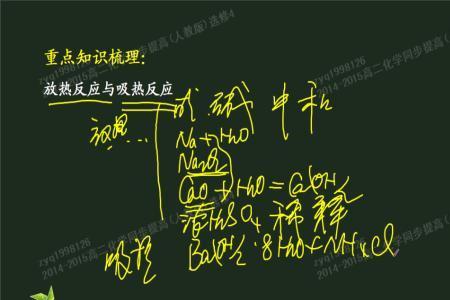 重点知识梳理:
放热反应与吸热反应
放热... 酸碱中和
Na+H2O
Na2O2
CaO+H2O=Ca(OH)2
浓H2SO4 稀释
吸热 Ba(OH)2·8H2O+NH4Cl
zyq1998126
2014-2015高二化学同步提高(人教版)选修4
zyq1998126
2014-2015高二化学同步提高(人教版)选修4
zyq1998126
2014-2015